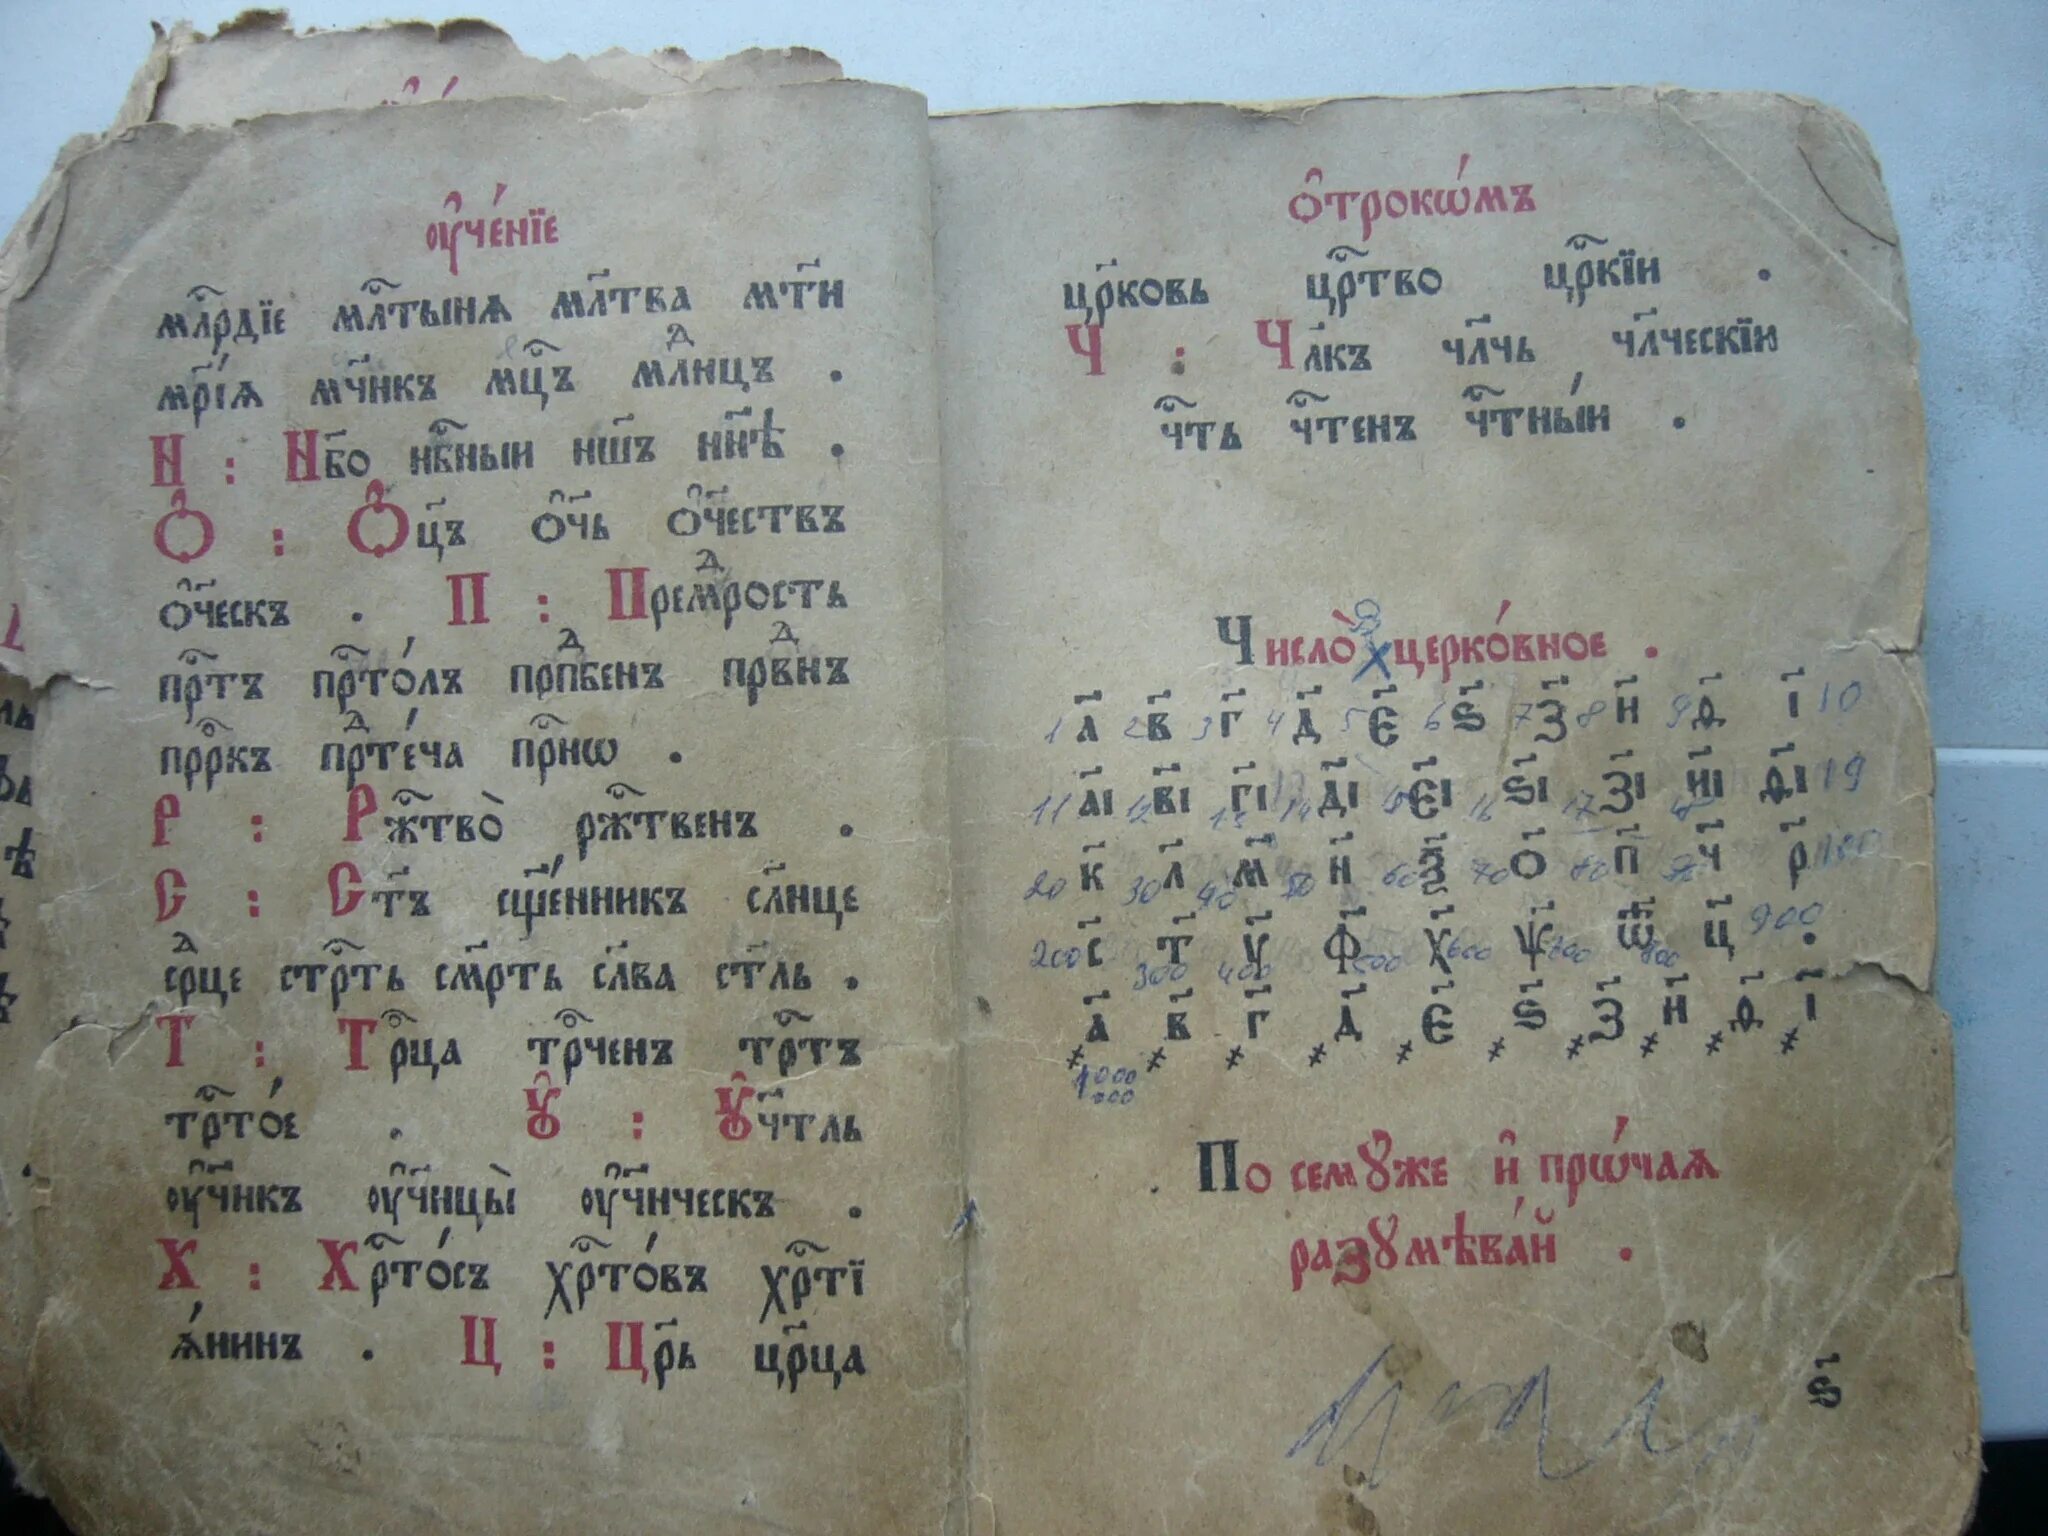 оу҆че́нїе
мл҃рдїе мл҃тыня мл҃тва мт҃и
мр҃і́я мч҃нкъ мц҃ъ млⷣнцъ .
Н : Нб҃о нб҃ныи нш҃ъ нн҃ѣ .
Ѻ҆ : Ѻ҆ц҃ъ ѻ҆ч҃ь ѻ҆ч҃ествъ
ѻ҆ч҃ескъ . П : Премⷣрость
пр҃тъ пр҃то́лъ прпⷣбенъ прⷣвнъ
пр҃ркъ прⷣте́ча пр҃нѡ .
Р : Рж҃тво̀ рж҃твенъ .
С : Ст҃ъ сщ҃е́нникъ сл҃нце
срⷣце стр҃ть см҃рть сл҃ва ст҃ль .
Т : Тр҃ца тр҃ченъ тр҃тъ
тр҃то́е . Ꙋ҆ : Ꙋ҆ч҃тль
оу҆ч҃нкъ оу҆ч҃ницы̀ оу҆ч҃ническъ .
Х : Хр҃то́съ хр҃то́въ хр҃тї
я́нинъ . Ц : Цр҃ь цр҃ца
ѻ҆трокѡ́мъ
цр҃ковь цр҃тво цр҃кїи .
Ч : Чл҃къ чл҃чь чл҃ческїи
чт҃ь чт҃енъ чт҃ны́и .
Число̀ церко́вное .
1 а҃ 2 в҃ 3 г҃ 4 д҃ 5 є҃ 6 ѕ҃ 7 з҃ 8 и҃ 9 ѳ҃ і҃ 10
11 а҃і 12 в҃і 13 г҃і 14 д҃і 15 є҃і 16 ѕ҃і 17 з҃і 18 и҃і ѳ҃і 19
20 к҃ 30 л҃ 40 м҃ 50 н҃ 60 ѯ҃ 70 о҃ 80 п҃ 90 ч҃ р҃ 100
200 с҃ 300 т҃ 400 у҃ ф҃ 500 х҃ 600 ѱ҃ 700 ѿ҃ 800 ц҃ 900 .
҂а҃ ҂в҃ ҂г҃ ҂д҃ ҂є҃ ҂ѕ҃ ҂з҃ ҂и҃ ҂ѳ҃ ҂і҃
1000
По семꙋ́же и҆ прѡ́чая
разꙋмѣва́й .
ѕ҃